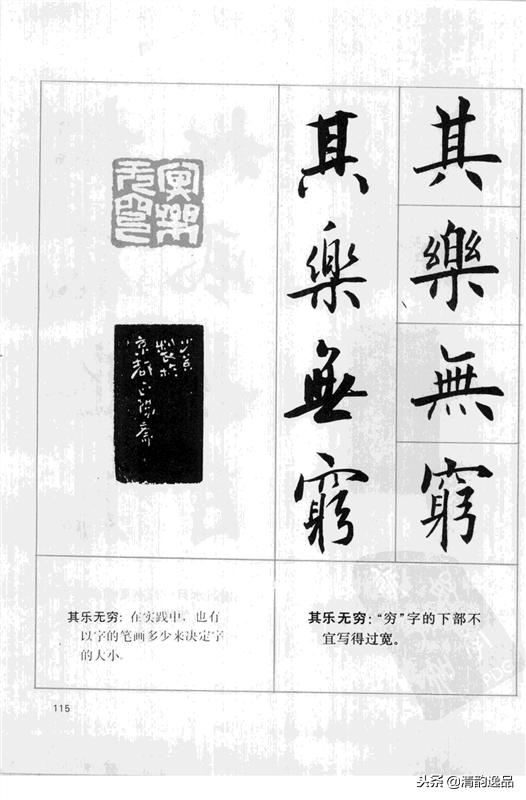 其樂無窮
其樂無窮
其乐无穷：在实践中，也有
以字的笔画多少来决定字
的大小。
其乐无穷：“穷”字的下部不
宜写得过宽。
115
头条@清韵逸品